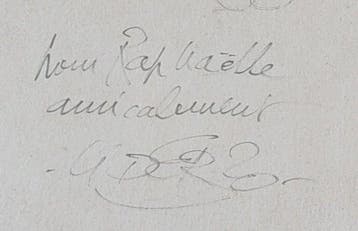 pour Raphaëlle
amicalement